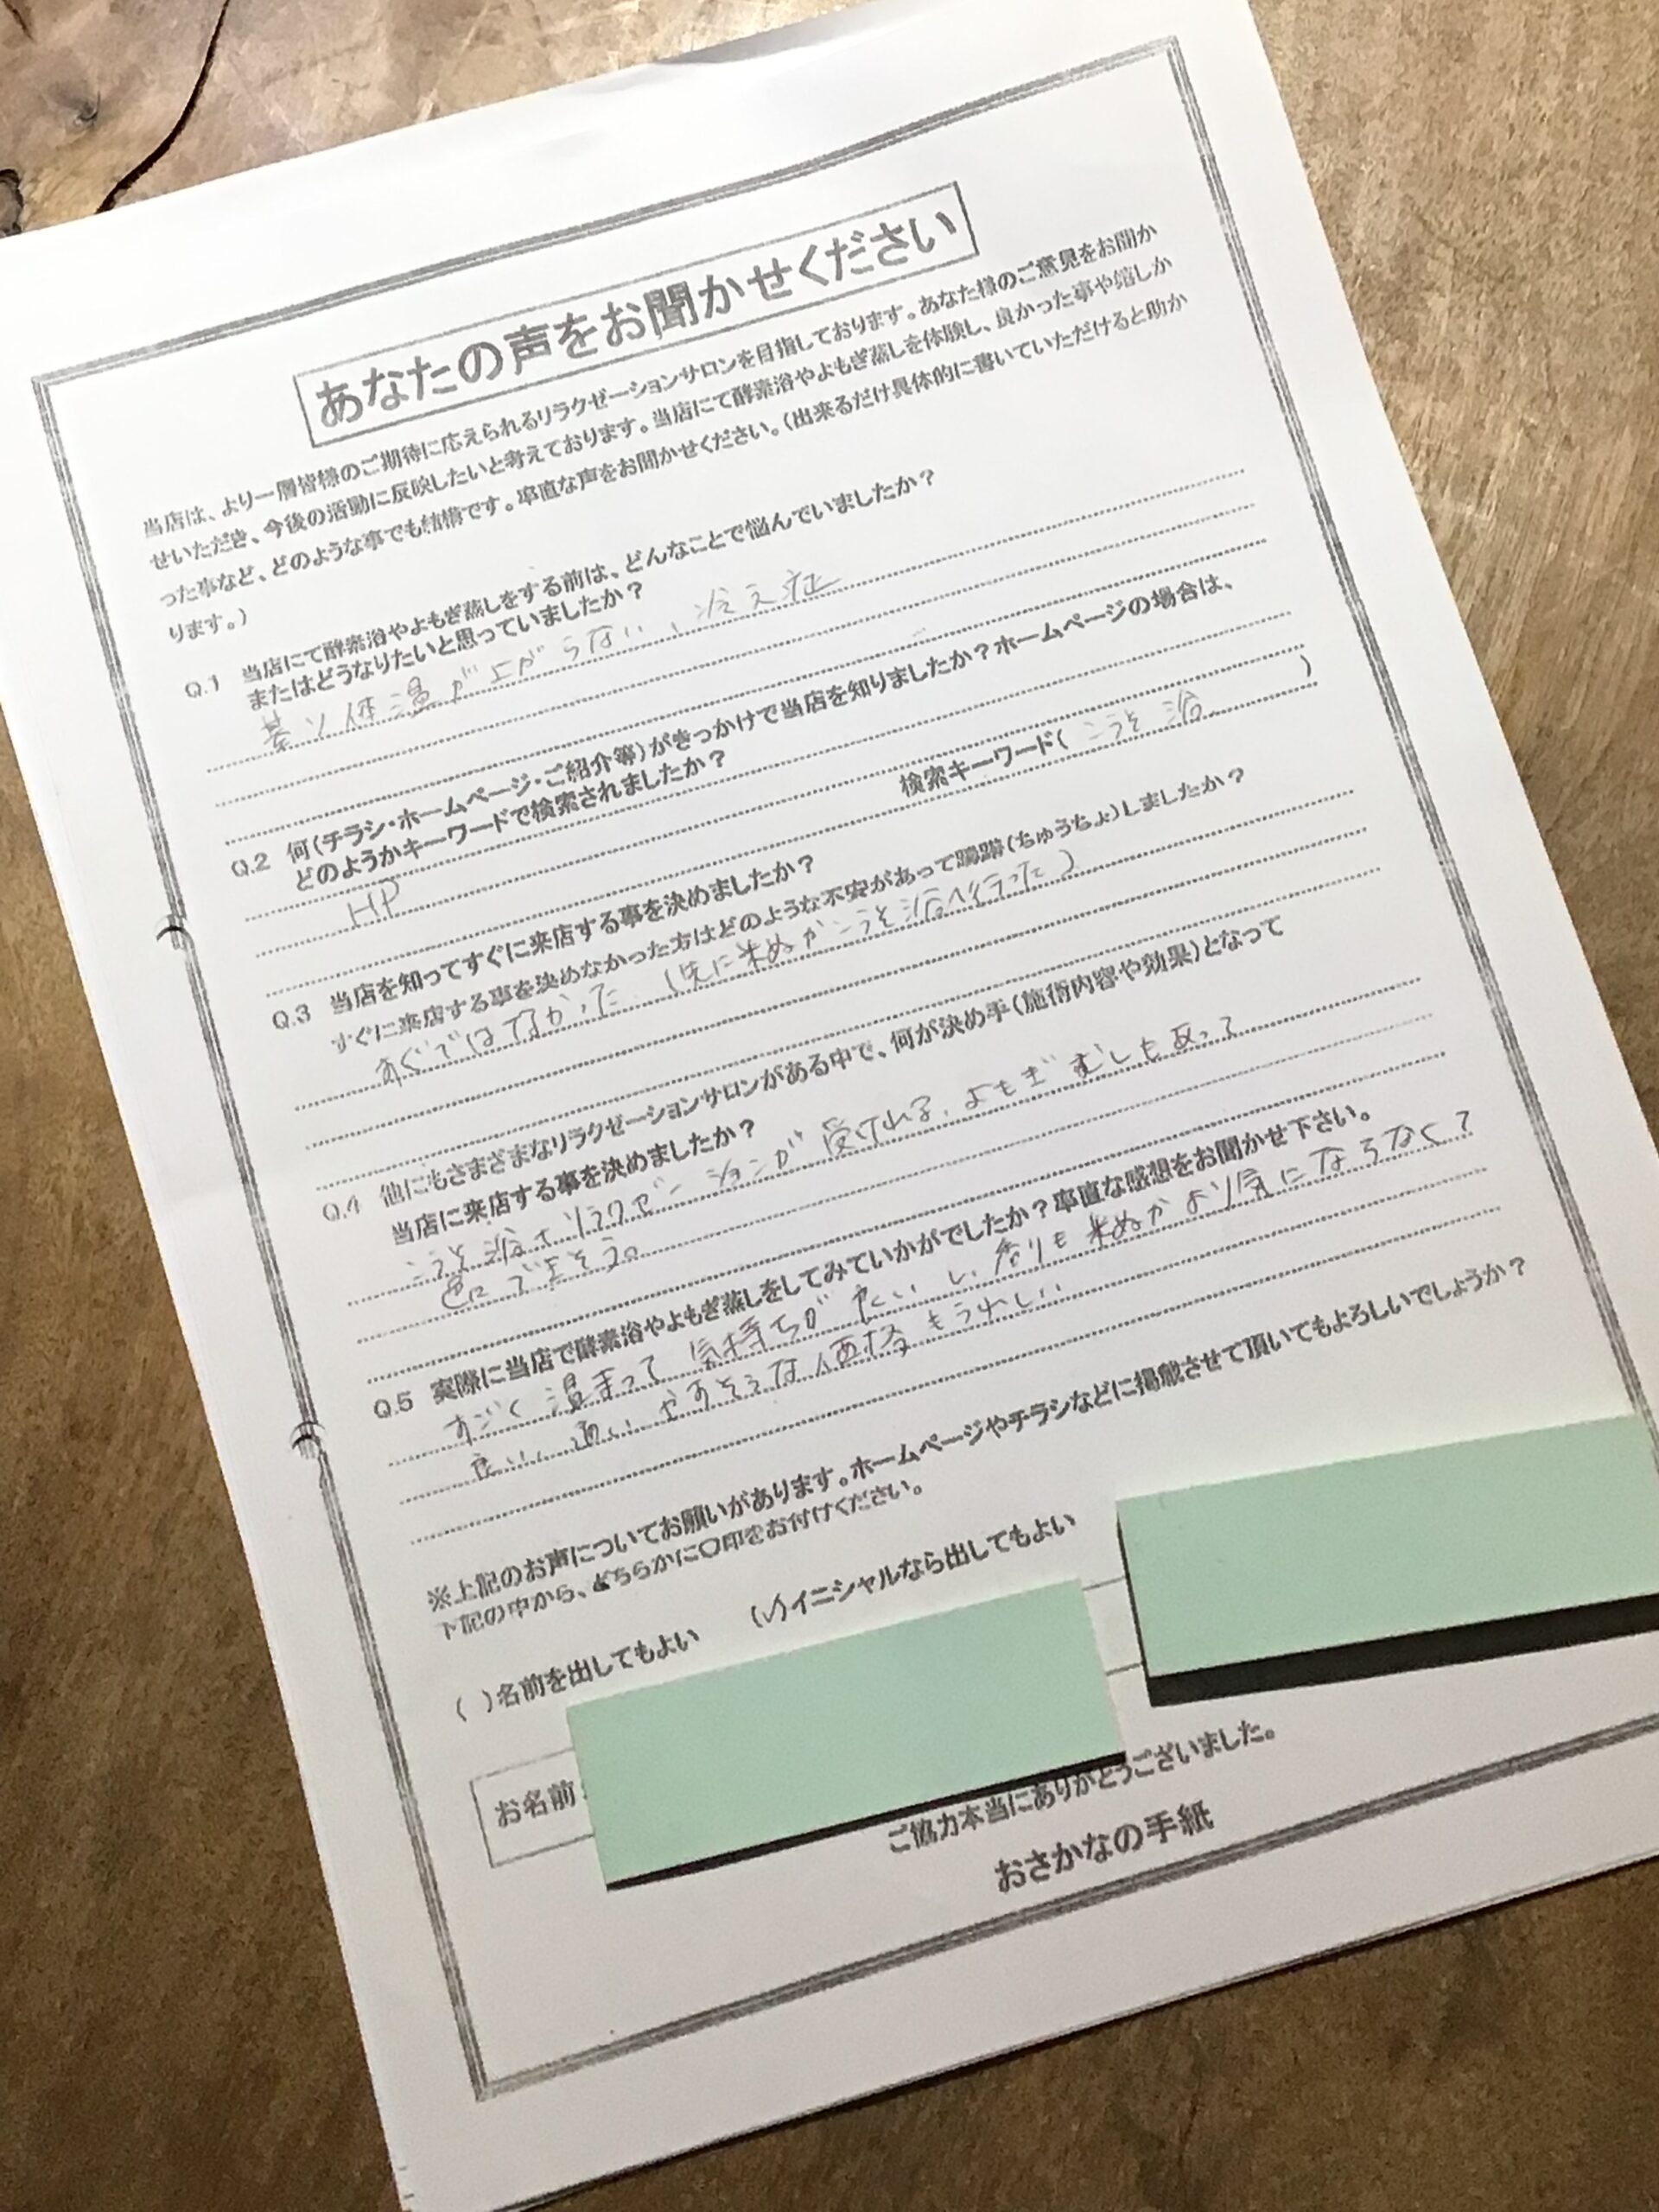 あなたの声をお聞かせください
当店は、より一層皆様のご期待に応えられるリラクゼーションサロンを目指しております。あなた様のご意見をお聞か
せいただき、今後の活動に反映したいと考えております。当店にて酵素浴やよもぎ蒸しを体験し、良かった事や嬉しか
った事など、どのような事でも結構です。率直な声をお聞かせください。(出来るだけ具体的に書いていただけると助か
ります。)
Q.1 当店にて酵素浴やよもぎ蒸しをする前は、どんなことで悩んでいましたか?
またはどうなりたいと思っていましたか?
基ソ体温が上がらない、冷え症
Q.2 何(チラシ・ホームページ・ご紹介等)がきっかけで当店を知りましたか?ホームページの場合は、
どのようかキーワードで検索されましたか?
検索キーワード( こうそ浴 )
HP
Q.3 当店を知ってすぐに来店する事を決めましたか?
すぐに来店する事を決めなかった方はどのような不安があって躊躇(ちゅうちょ)しましたか?
すぐではなかった (先に米ぬかこうそ浴へ行った)
Q.4 他にもさまざまなリラクゼーションサロンがある中で、何が決め手(施術内容や効果)となって
当店に来店する事を決めましたか?
こうそ浴でリラクゼーションが受けれる、よもぎむしもあって
できそう。
Q.5 実際に当店で酵素浴やよもぎ蒸しをしてみていかがでしたか?率直な感想をお聞かせ下さい。
すごく温まって気持ちが良いし、香りも米ぬかより気にならなくて
良い。通いやすそうな価格もうれしい
※上記のお声についてお願いがあります。ホームページやチラシなどに掲載させて頂いてもよろしいでしょうか?
下記の中から、どちらかに〇印をお付けください。
( )名前を出してもよい (✓)イニシャルなら出してもよい
お名前:
ご協力本当にありがとうございました。
おさかなの手紙